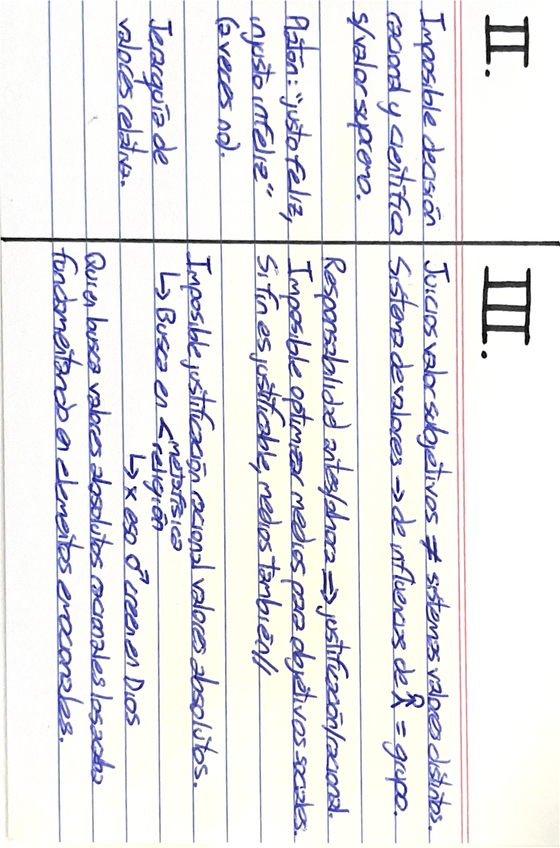 II.
Imposible decisión
racional y científica
s/valor supremo.
Platón: "justo feliz,
injusto infeliz"
(a veces no).
Jerarquía de
valores relativa.
III.
Juicios valor subjetivos ≠ sistemas valores distintos.
Sistema de valores ⇒ de influencias de = grupo.
Responsabilidad antes/ahora ⇒ justificación/racional.
Imposible optimizar medios para objetivos sociales.
Si fin es justificable, medios también//
Imposible justificación racional valores absolutos.
↳ Busca en < metafísica
religión
↳ x eso creen en Dios
Quien busca valores absolutos racionales los acaba
fundamentando en elementos emocionales.